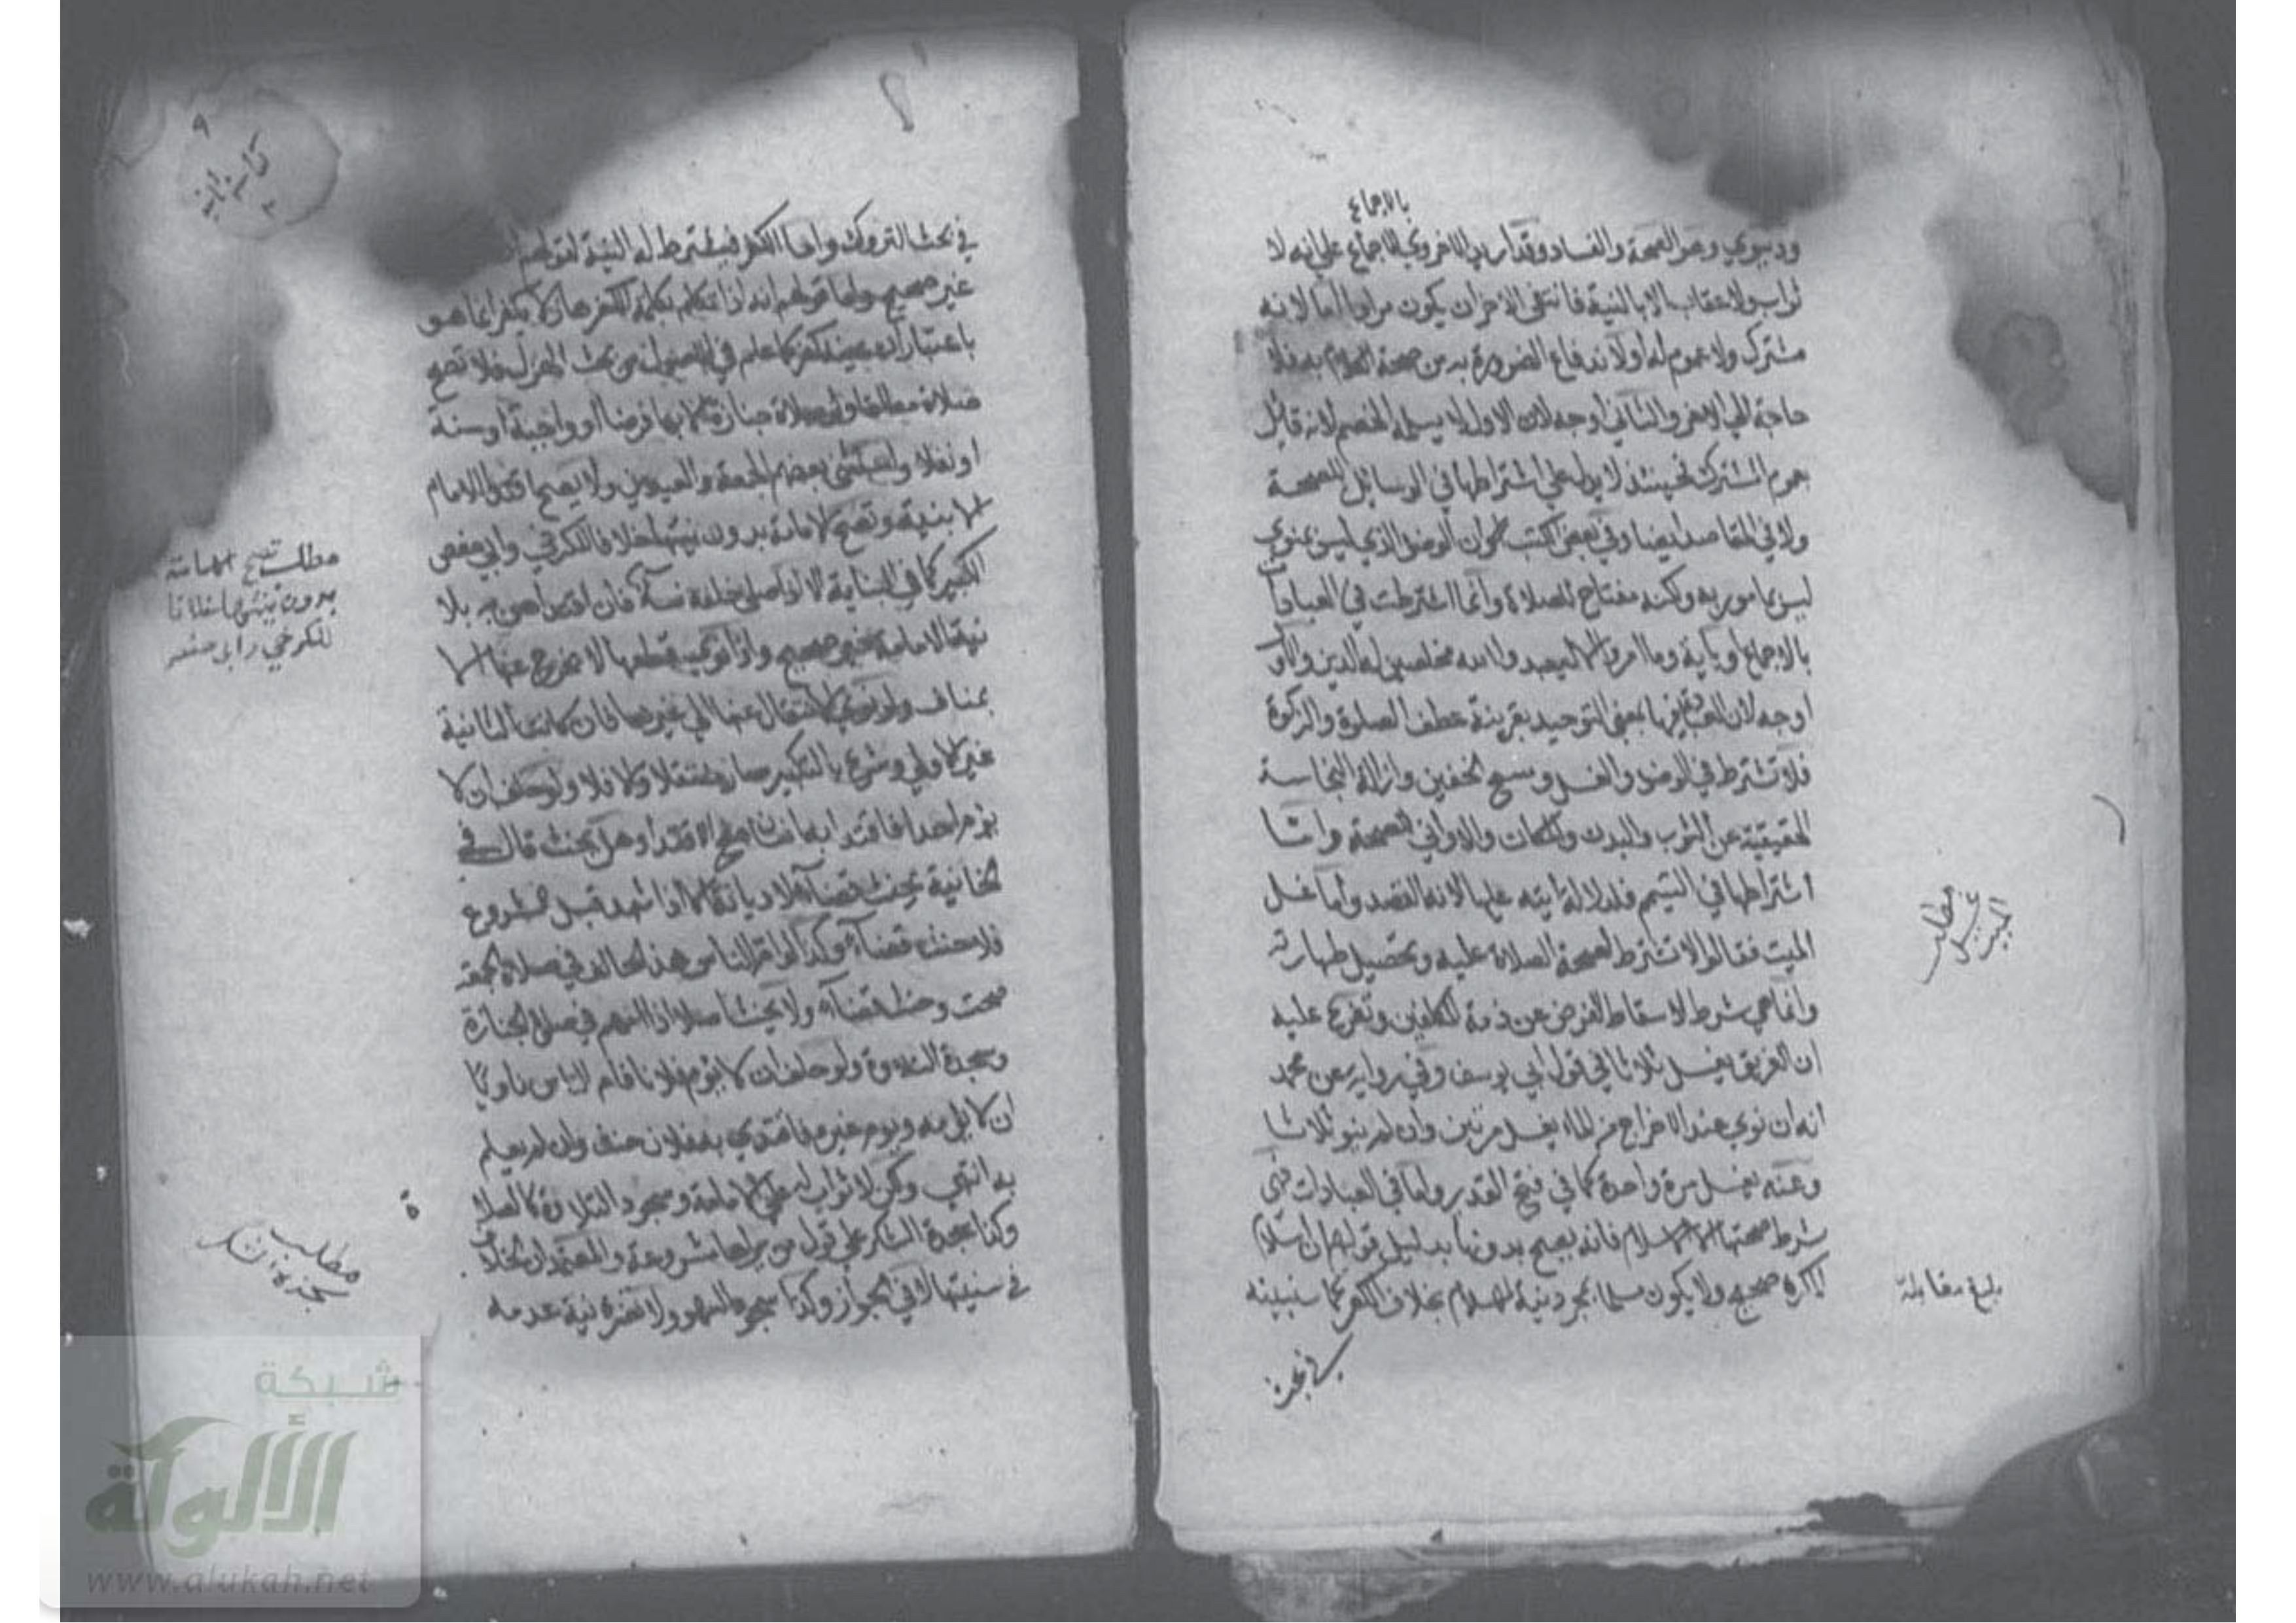 بالاجماع
ودنيوي وهو الصحة والفساد وقد أريد الاخروي بالاجماع علي انه لا
ثواب ولا عقاب الا بالنية فانتفى الاخر ان يكون مرادا اما لانه
مشترك ولا عموم له أو لاندفاع الضرورة به من صحة الكلام به فلا
حاجة الي الاخر والثاني اوجه لان الاول لا يسلمه الخصم لانه قائل
بعموم المشترك فحينئذ لا يدل علي اشتراطها في الوسائل للصحة
ولا في المقاصد ايضا وفي بعض الكتب ان الوضو الذي ليس بمنوي
ليس بمامور به ولكنه مفتاح للصلاة وانما اشترطت في العبادات
بالاجماع او باية وما امروا الا ليعبدوا الله مخلصين له الدين والاول
اوجه لان العبادة فيها بمعني التوحيد بقرينة عطف الصلوة والزكوة
فلا تشترط في الوضو والغسل ومسح الخفين وازالة النجاسة
الحقيقية عن الثوب والبدن والمكان والاواني للصحة واما
اشتراطها في التيمم فلدلالة ايته عليها لانه القصد وأما غسل
الميت فقالوا لا تشترط لصحة الصلاة عليه وتحصيل طهارته
وانما هي شرط لاسقاط الفرض عن ذمة المكلفين وتفرع عليه
ان الغريق يغسل ثلاثا في قول ابي يوسف وفي رواية عن محمد
انه ان نوي عند الاخراج من الماء يغسل مرتين وان لم ينو ثلاثا
وعنه يغسل مرة واحدة كما في فتح القدير واما في العبادات فهي
شرط صحتها الا الاسلام فانه يصح بدونها بدليل قولهم ان اسلام
المكره صحيح ولا يكون مسلما بمجرد نية الاسلام بخلاف الكفر كما سنبينه
في بحث
مطلب
غسل
الميت
بلغ مقابلة
في بحث التروك واما الكفر فيشترط له النية لقولهم
غير صحيح واما قولهم انه اذا تكلم بكلمة الكفر هازلا يكفر انما هو
باعتبار ان عينه كفر كما علم في الاصول من بحث الهزل فلا تصح
صلاة مطلقا ولو صلاة جنازة الا بها فرضا أو واجبة أو سنة
او نفلا بعضهم الجمعة والعيدين ولا يصح اقتداء الامام
الا بنية وتصح الامامة بدون نيتها خلافا للكرخي وابي حفص
الكبير كما في البناية الا اذا صلى خلفه نساء فان اقتداهن به بلا
نية الامامة غير صحيح واذا نوي قطعها لا يخرج عنها الا
بمناف ولو نوي الانتقال عنها الي غيرها فان كانت الثانية
غير الاولي وشرع بالتكبير صار منتقلا والا فلا ولو حلف ان لا
يؤم احدا فاقتدا به انسان صح الاقتدا وهل يحنث قال في
الخانية يحنث قضاء لا ديانة الا اذا اشهد قبل الشروع
فلا حنث قضاء وكذا لو ام الناس هذا الحالف في صلاة الجمعة
صحت وحنث قضاء ولا يحنث اصلا اذا امهم في صلاة الجنازة
وسجدة التلاوة ولو حلف ان لا يؤم فلانا فام الناس ناويا
ان لا يؤمه ويؤم غيره فاقتدي به فلان حنث وان لم يعلم
به انتهي ولكن لا ثواب له علي الامامة وسجود التلاوة كالصلاة
وكذا سجدة الشكر علي قول من يراها مشروعة والمعتمد ان الخلاف
في سنيتها لا في الجواز وكذا سجود السهو ولا تضره نية عدمه
مطلب تصح الامامة
بدون نيتها خلافا
للكرخي وابي حفص
مطلب
سجدة الشكر
شبكة
الألوكة
www.alukah.net